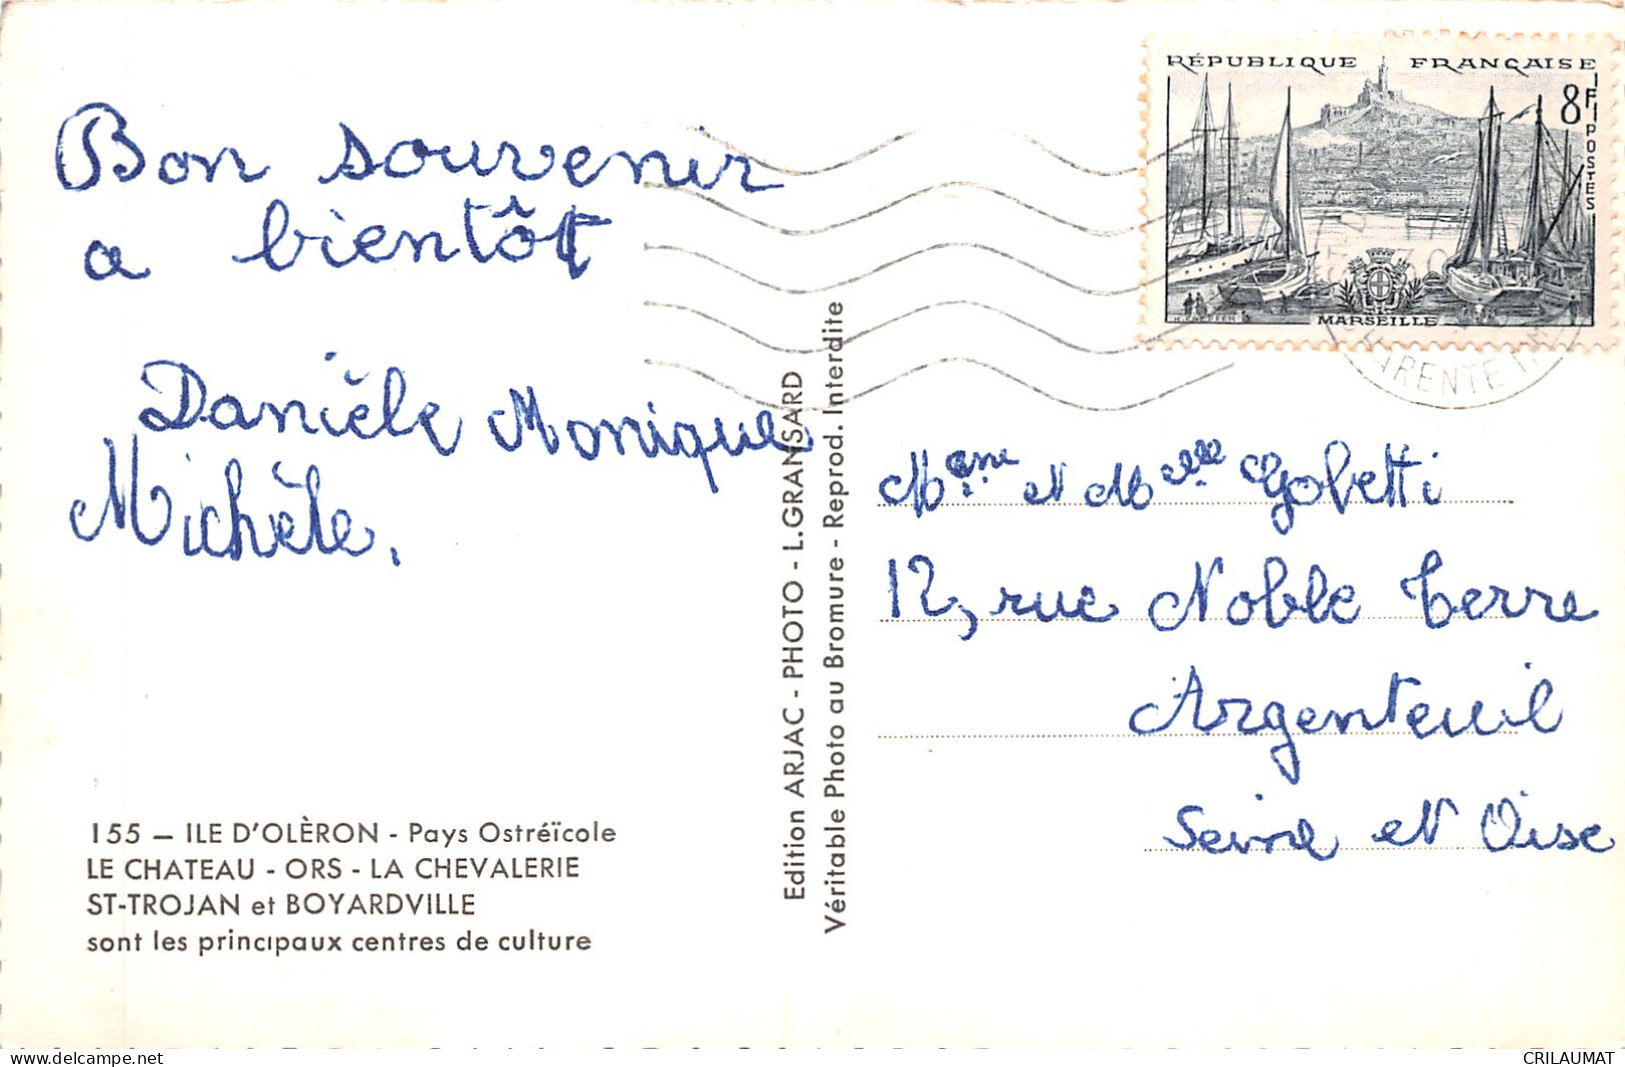 Bon souvenir
a bientôt
Danièle Monique
Michèle.
155 – ILE D'OLÈRON - Pays Ostréïcole
LE CHATEAU - ORS - LA CHEVALERIE
ST-TROJAN et BOYARDVILLE
sont les principaux centres de culture
Edition ARJAC - PHOTO - L. GRANSARD
Véritable Photo au Bromure - Reprod. Interdite
RÉPUBLIQUE FRANÇAISE
8F
POSTES
MARSEILLE
Mme et Melle Gobetti
12, rue Noble Terre
Argenteuil
Seine et Oise
CRILAUMAT